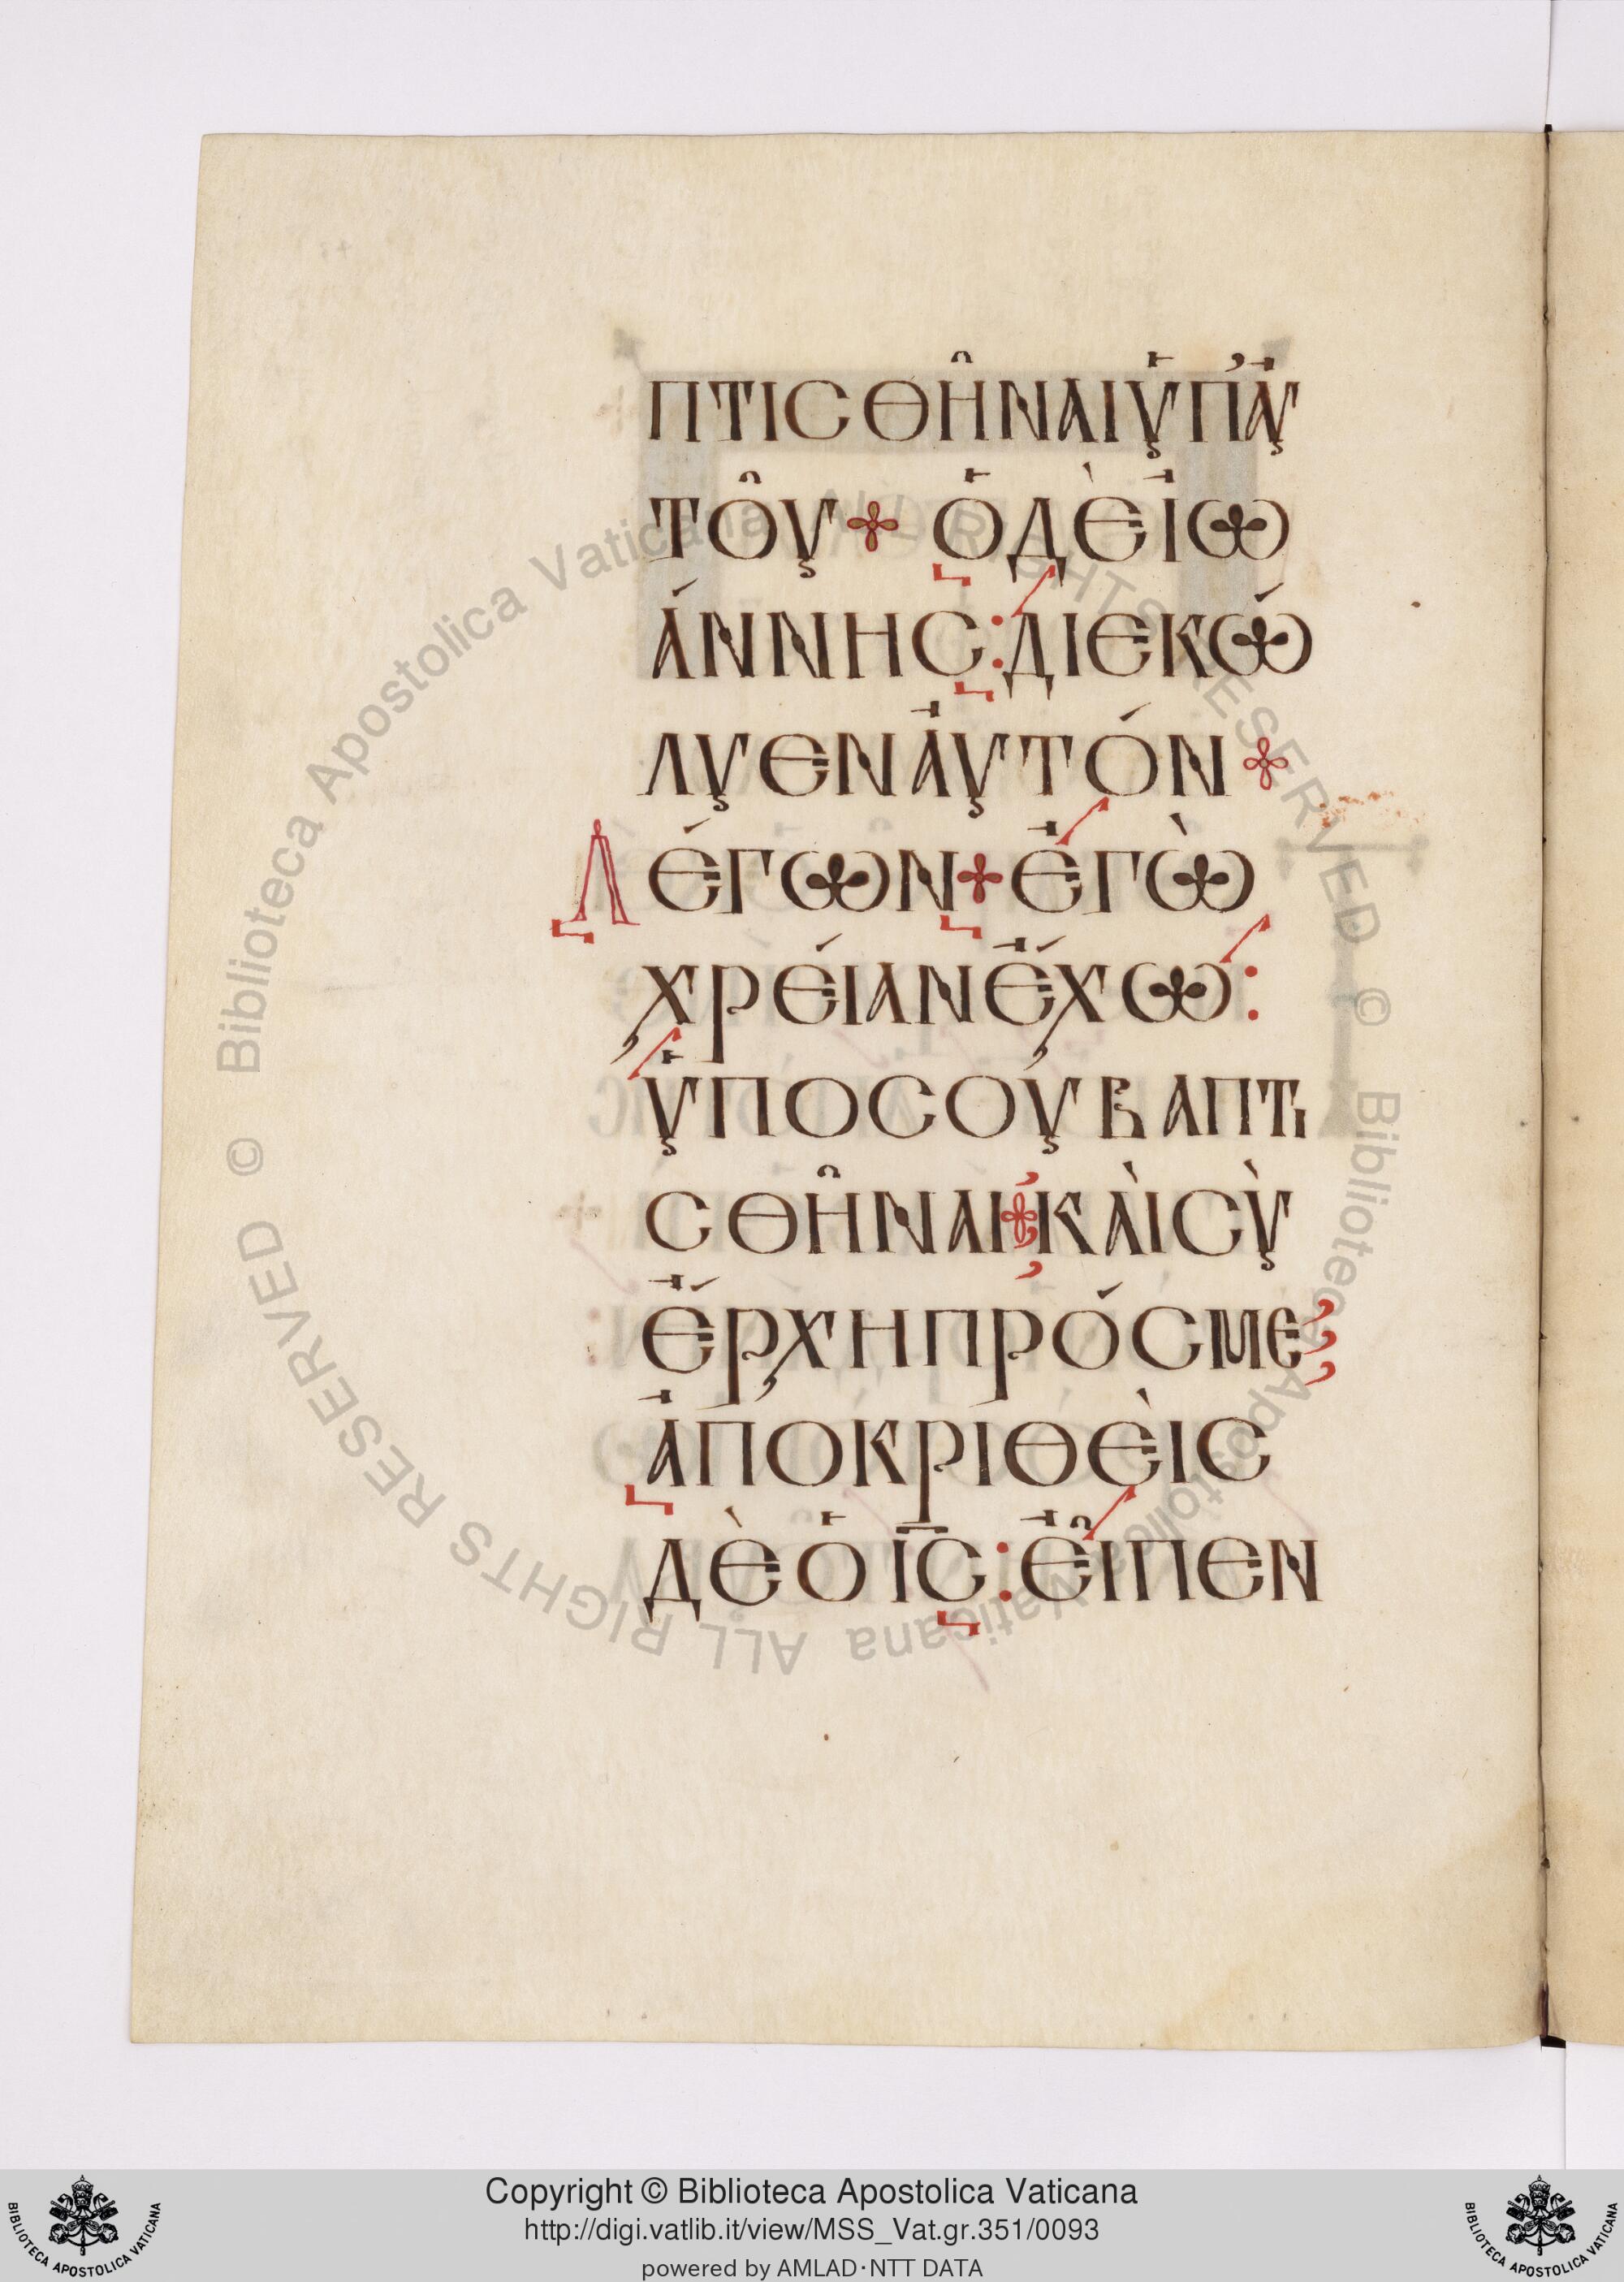 ΠΤΙΣΘΗ͂ΝΑΙὙΠ’ἈΥ
ΤΟΥ͂ ✣ ὉΔῈἸΩ
ΆΝΝΗΣ:ΔΙΕΚΏ
ΛΥΕΝἈΥΤΌΝ ✣
ΛΈΓΩΝ ✣ ἘΓῺ
ΧΡΕΊΑΝἜΧΩ:
ὙΠΟΣΟΥ͂ΒΑΠΤΙ
ΣΘΗ͂ΝΑΙ ✣ ΚΑῚΣῪ
ἜΡΧΗΠΡΌΣΜΕ
ἈΠΟΚΡΙΘΕῚΣ
ΔῈὉΙ̅Σ̅:ΕἾΠΕΝ
© Biblioteca Apostolica Vaticana ALL RIGHTS RESERVED © Biblioteca Apostolica Vaticana ALL RIGHTS RESERVED
BIBLIOTECA APOSTOLICA VATICANA
Copyright © Biblioteca Apostolica Vaticana
http://digi.vatlib.it/view/MSS_Vat.gr.351/0093
powered by AMLAD·NTT DATA
BIBLIOTECA APOSTOLICA VATICANA